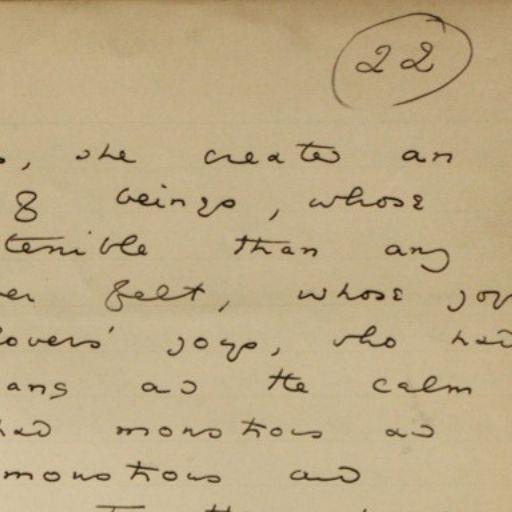 22
, she creates an
of beings, whose
terrible than any
er felt, whose joy
lovers' joys, who had
ang as the calm
had monstrous as
monstrous and